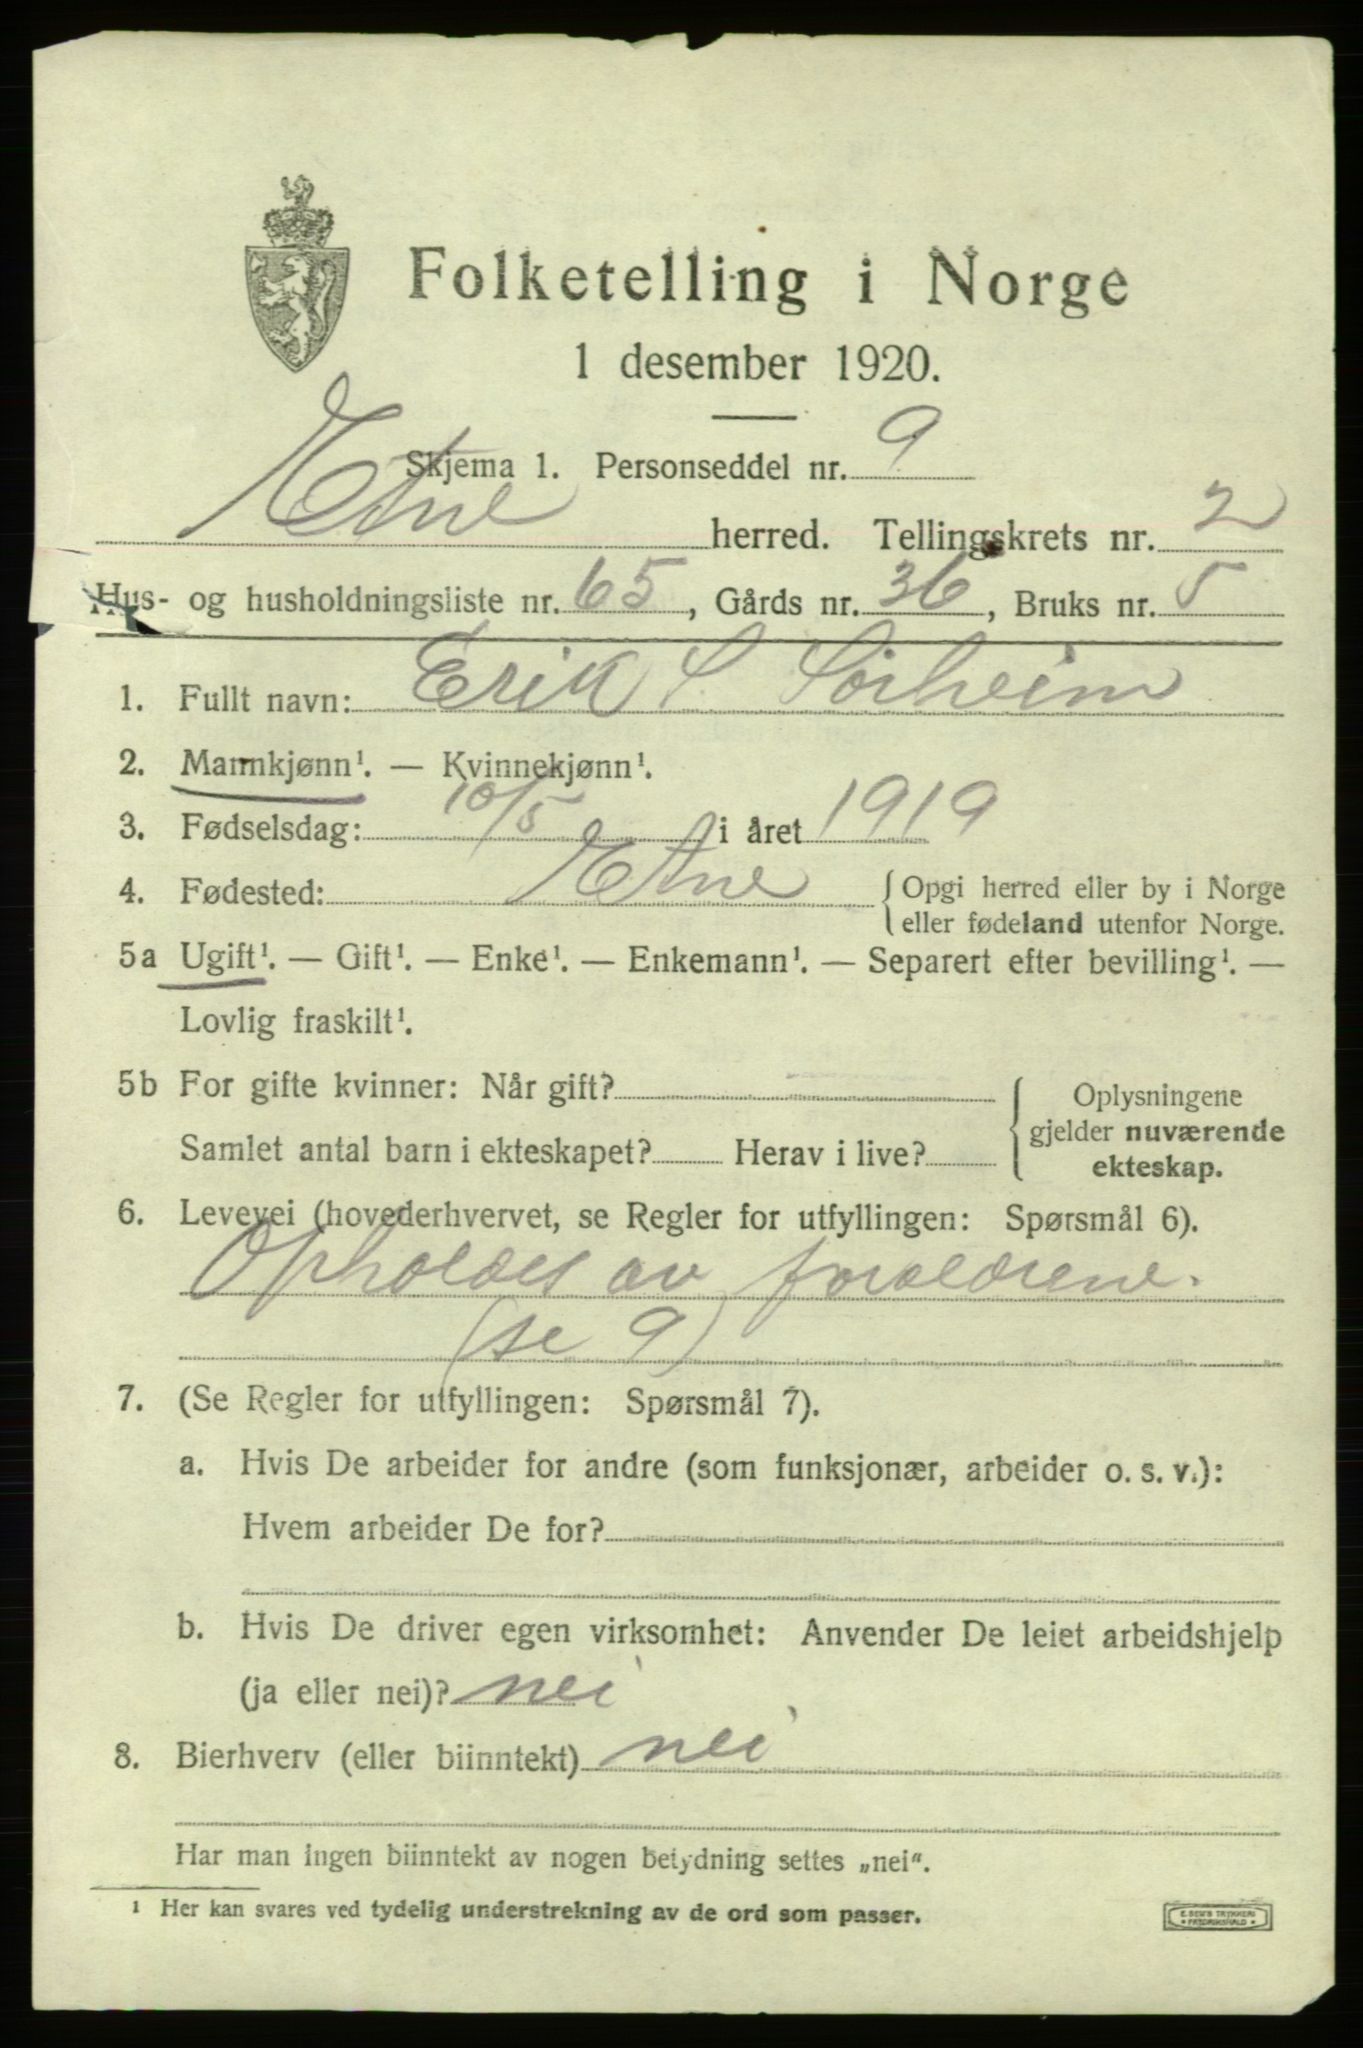 Folketelling i Norge
1 desember 1920.
Skjema 1. Personseddel nr. 9
Etne herred. Tellingskrets nr. 2
Hus- og husholdningsliste nr. 65, Gårds nr. 36, Bruks nr. 5
1. Fullt navn: Erik S. Sörheim
2. Mannkjønn¹. — Kvinnekjønn¹.
3. Fødselsdag: 10/5 i året 1919
4. Fødested: Etne { Opgi herred eller by i Norge
eller fødeland utenfor Norge.
5a Ugift¹. — Gift¹. — Enke¹. — Enkemann¹. — Separert efter bevilling¹. —
Lovlig fraskilt¹.
5b For gifte kvinner: Når gift? { Oplysningene
gjelder nuværende
Samlet antal barn i ekteskapet? Herav i live? ekteskap.
6. Levevei (hovederhvervet, se Regler for utfyllingen: Spørsmål 6).
Opholdes av foreldrene.
(se 9)
7. (Se Regler for utfyllingen: Spørsmål 7).
a. Hvis De arbeider for andre (som funksjonær, arbeider o. s. v.):
Hvem arbeider De for?
b. Hvis De driver egen virksomhet: Anvender De leiet arbeidshjelp
(ja eller nei)? nei
8. Bierhverv (eller biinntekt) nei
Har man ingen biinntekt av nogen betydning settes „nei“.
¹ Her kan svares ved tydelig understrekning av de ord som passer.
E. SEM'S TRYKKERI
• FREDRIKSHALD •